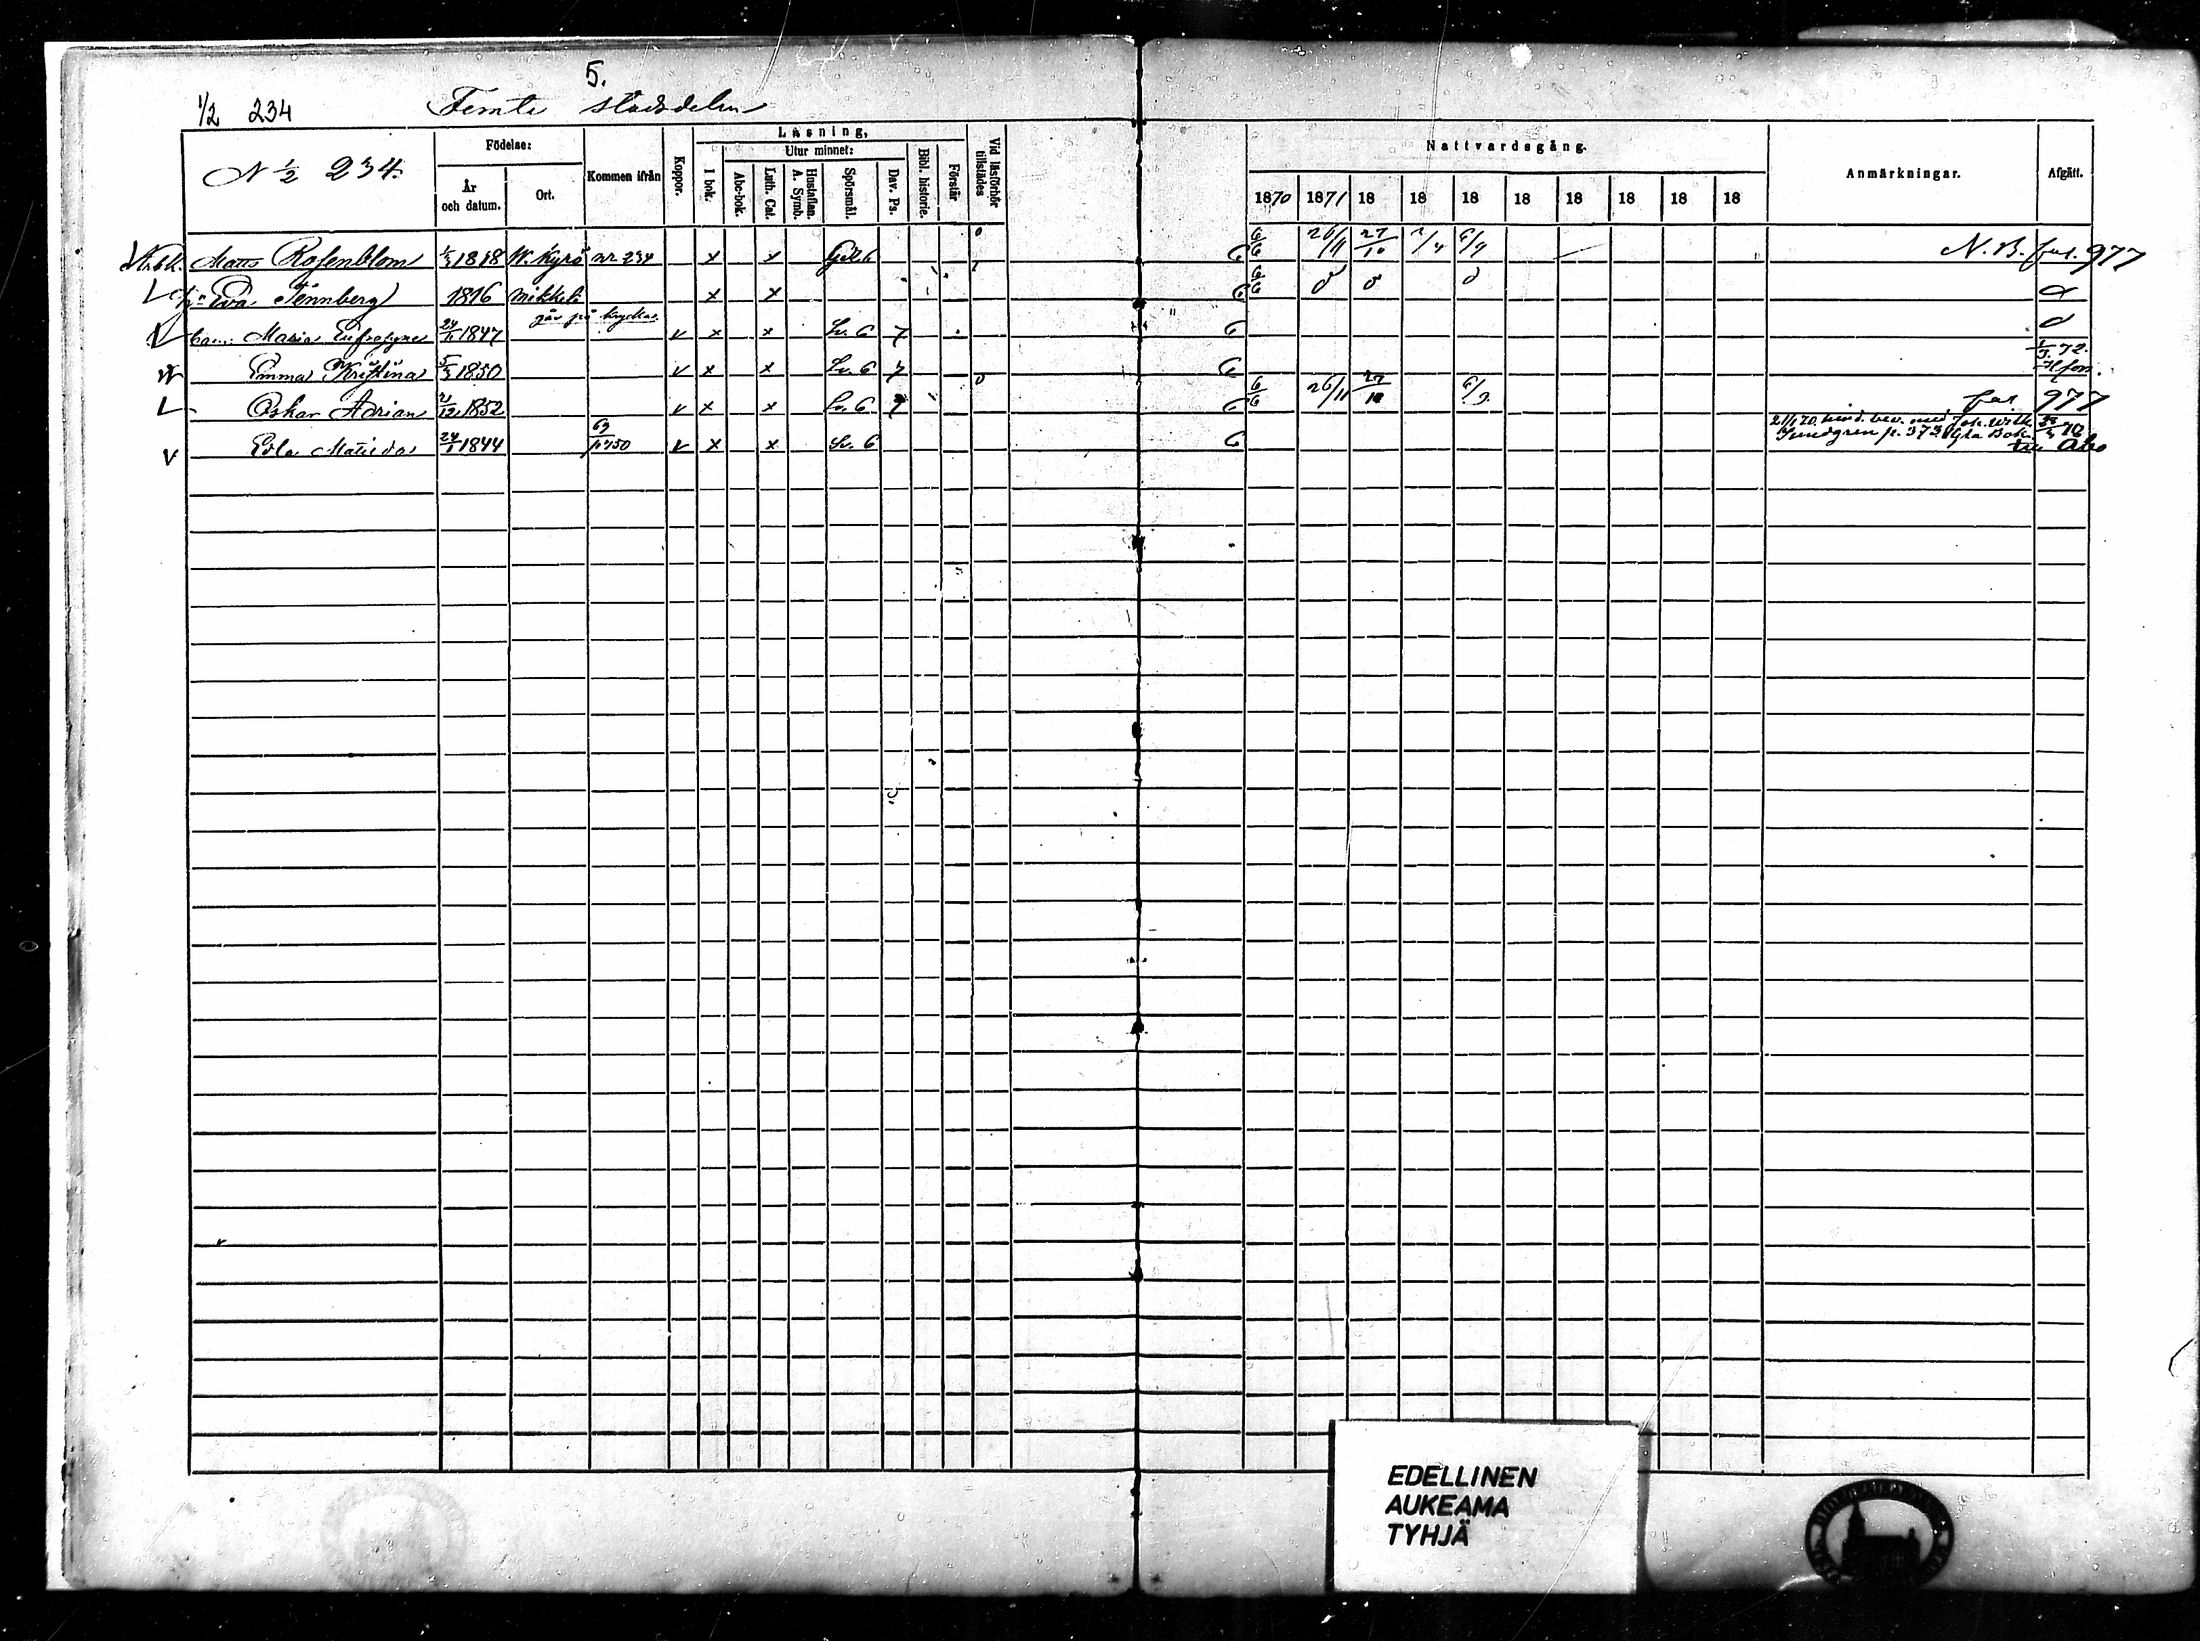 5.
1/2 234 Femte stadsdelen
N 1/2 234.
Födelse:
År och datum.
Ort.
Kommen ifrån
Koppor.
Läsning,
I bok.
Utur minnet:
Abc-bok.
Luth. Cat.
Hustaflan. A. Symb.
Spörsmål.
Dav. Ps.
Bibl. historie.
Förstår
Vid läsförhör tillstädes
Nattvardsgång.
1870 1871 18 18 18 18 18 18 18 18
Anmärkningar.
Afgått.
Matts Rosenblom 1818 W. Kyrö nr 234 x x 6/6 26/11 27/10 N. B. fol. 977
Eva Tennberg 1816 Mikkeli x x 6/6
går på kryckor
Maria Eufrosyne 1847 v x x Sv. 6 7
Emma Kristina 5/5 1850 v x x Sv. 6 7 72. Hfors.
Oskar Adrian 21/12 1852 v x x Sv. 6 7 6/6 26/11 27/10 977
Edla Matilda 24/1 1844 v x x Sv. 6 21/1 70. hind. bev. med Joh. Wilh. Sundgren p. 373 Gla Bok. 70 till Åbo
EDELLINEN
AUKEAMA
TYHJÄ